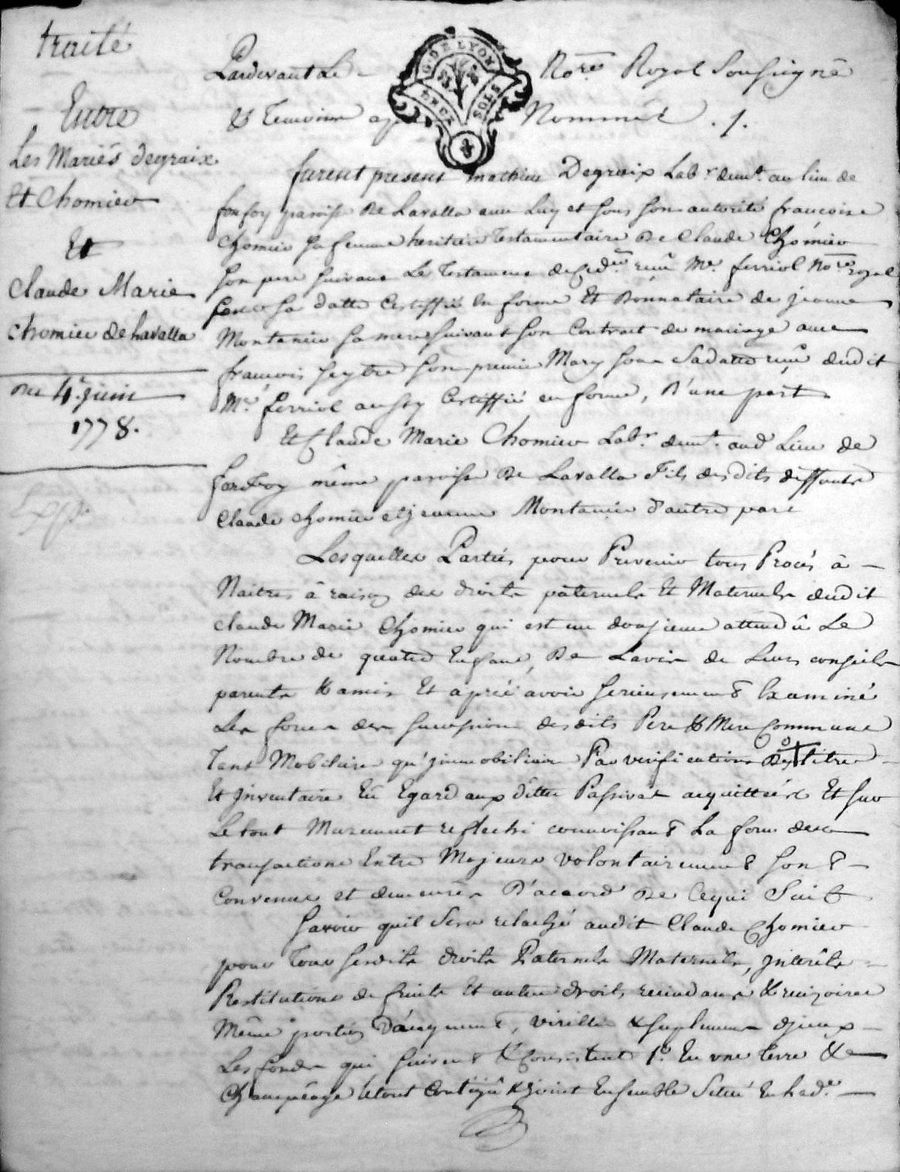 traité
Entre
Les Mariés degraix
Et Chomier
Et
Claude Marie
Chomier de Lavalla
Du 4e juin
1778.
G. DE LYON
DEUX SOLS
Pardevant Le Nore Royal Soussigné
& Temoins Nommés . / .
furent present mathieu Degraix Labr demt au lieu de
paroisse De Lavalla avec Luy et sous son autorité francoise
Chomier sa femme heritiere Testamentaire De Claude Chomier
son pere suivant Le Testament reçu Me ferriol Nore royal
sous sa datte Certiffié En forme Et Donnataire de jeanne
Montanier sa mere suivant son Contrat de mariage avec
francois seytre son premier Mary sous sa datte reçu dudit
Me ferriol aussy Certiffié en forme, D'une part
Et Claude Marie Chomier Labr demt aud Lieu de
même paroisse De Lavalla fils desdits deffunts
Claude chomier et jeanne Montanier d'autre part
Lesquelles Parties pour Prevenir tous Procés à
Naitres à raison des droits paternels Et Maternels dudit
Claude Marie Chomier qui est un attendû Le
Nombre de quatre Enfans, De Lavis de Leurs conseils
parents & amis Et aprés avoir serieusement Examiné
Les forces des successions desdits Pere & Mere Communs
Tant Mobiliaire qu'jmmobiliaire Par verifications des titres
Et jnventaire Eu Egard aux dettes Passives acquittées Et sur
Le tout Murement reflechi connoissant La force des
transactions Entre Majeurs volontairement sont
Convenus et demeurés D'accord De Cequi Suit
Savoir quil Sera relaché audit Claude Chomier
pour Tous sesdits droits Paternels Maternels, jnterêts
Restitutions de fruits Et autres droits &
Même portion D'augment, virille & suplement d'jceux
Les fonds qui suivent & Consistent 1o En une terre &
Champéage Letout Contigû & joint Ensemble Situé